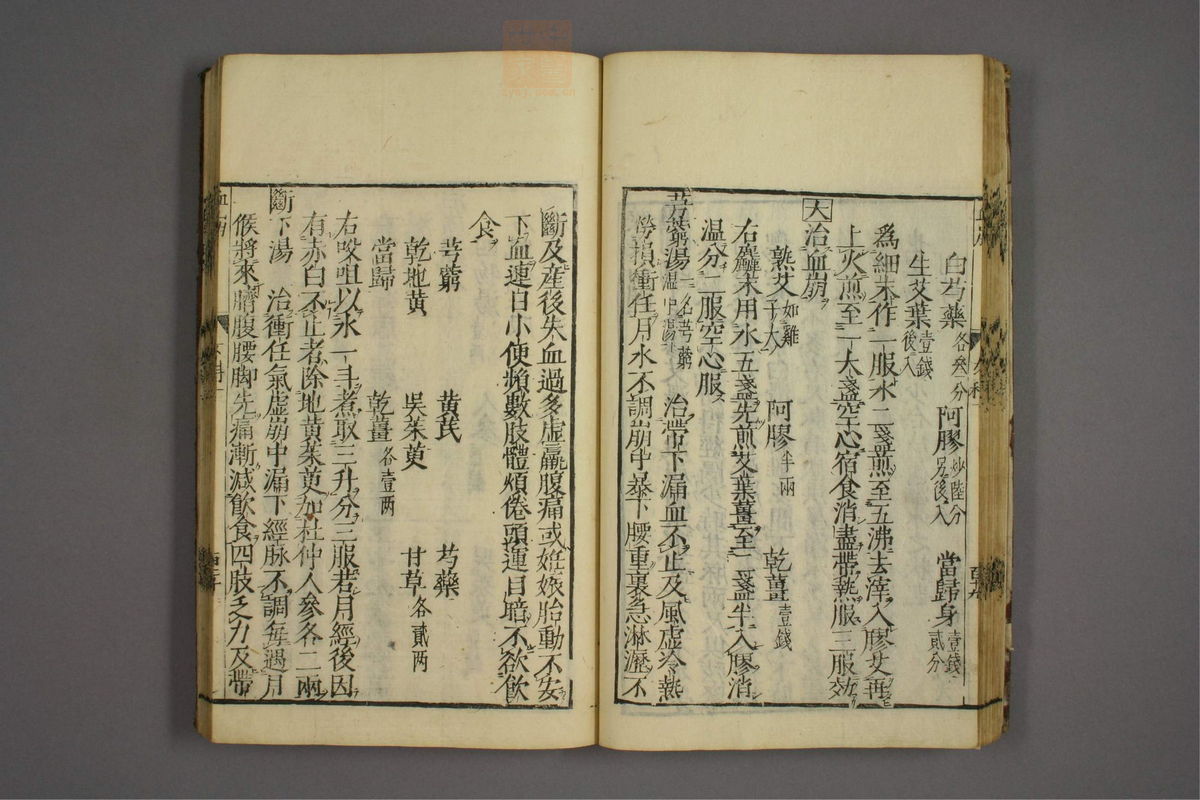 白芍藥各叄分 阿膠炒陸分另後入 當歸身壹錢貳分
生艾葉壹錢後入
爲細末作一服水二盞煎至五沸去滓入膠艾再
上火煎至一大盞空心宿食消盡帶熱服三服効
大治血崩
熟艾如雞子大 阿膠半兩 乾薑壹錢
右麤末用水五盞先煎艾葉薑至二盞半入膠消
温分二服空心服
芎藭湯一名芎藭温中湯 治帶下漏血不止及風虛冷熱
勞損衝任月水不調崩中暴下腰重裏急淋瀝不
斷及産後失血過多虛羸腹痛或妊娠胎動不安
下血連日小使頻數肢體煩倦頭運目暗不欲飲
食
芎藭 黄芪 芍藥
乾地黄 吳茱萸 甘草各貳两
當歸 乾薑各壹两
右㕮咀以水一斗煮取三升分三服若月經後因
有赤白不止者除地黄茱萸加杜仲人參各二兩
斷下湯 治衝任氣虛崩中漏下經脉不調每遇月
候將來臍腹腰脚先痛漸減飲食四肢乏力及帶